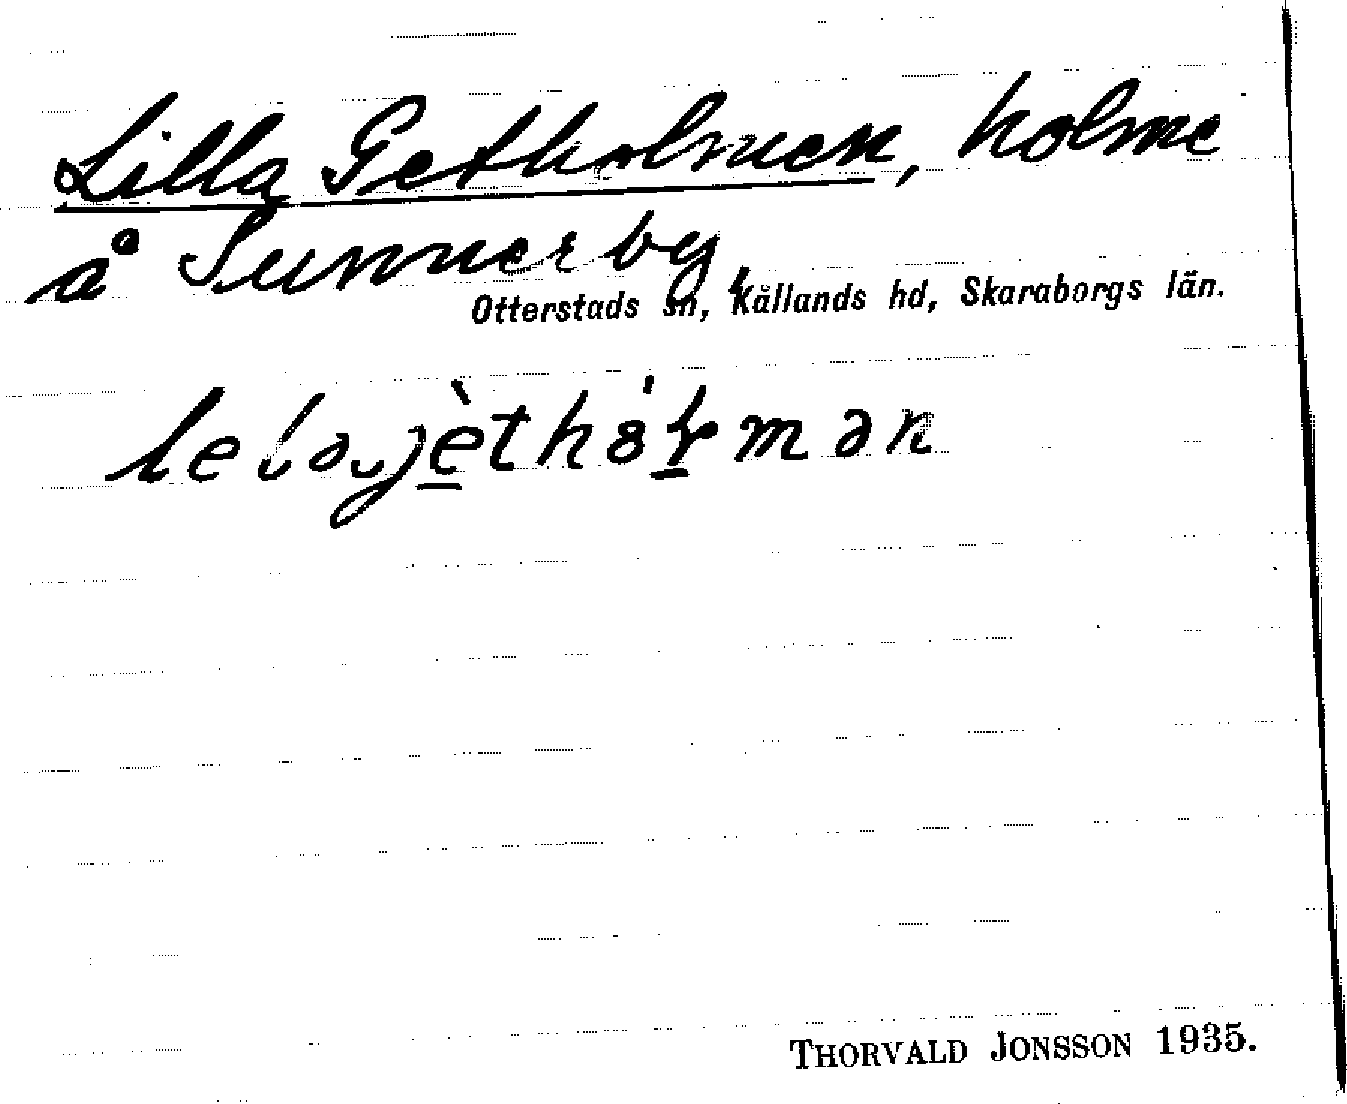 Lilla Getholmen, holme
å Sunnerby,
Otterstads sn, Kållands hd, Skaraborgs län.
THORVALD JONSSON 1935.